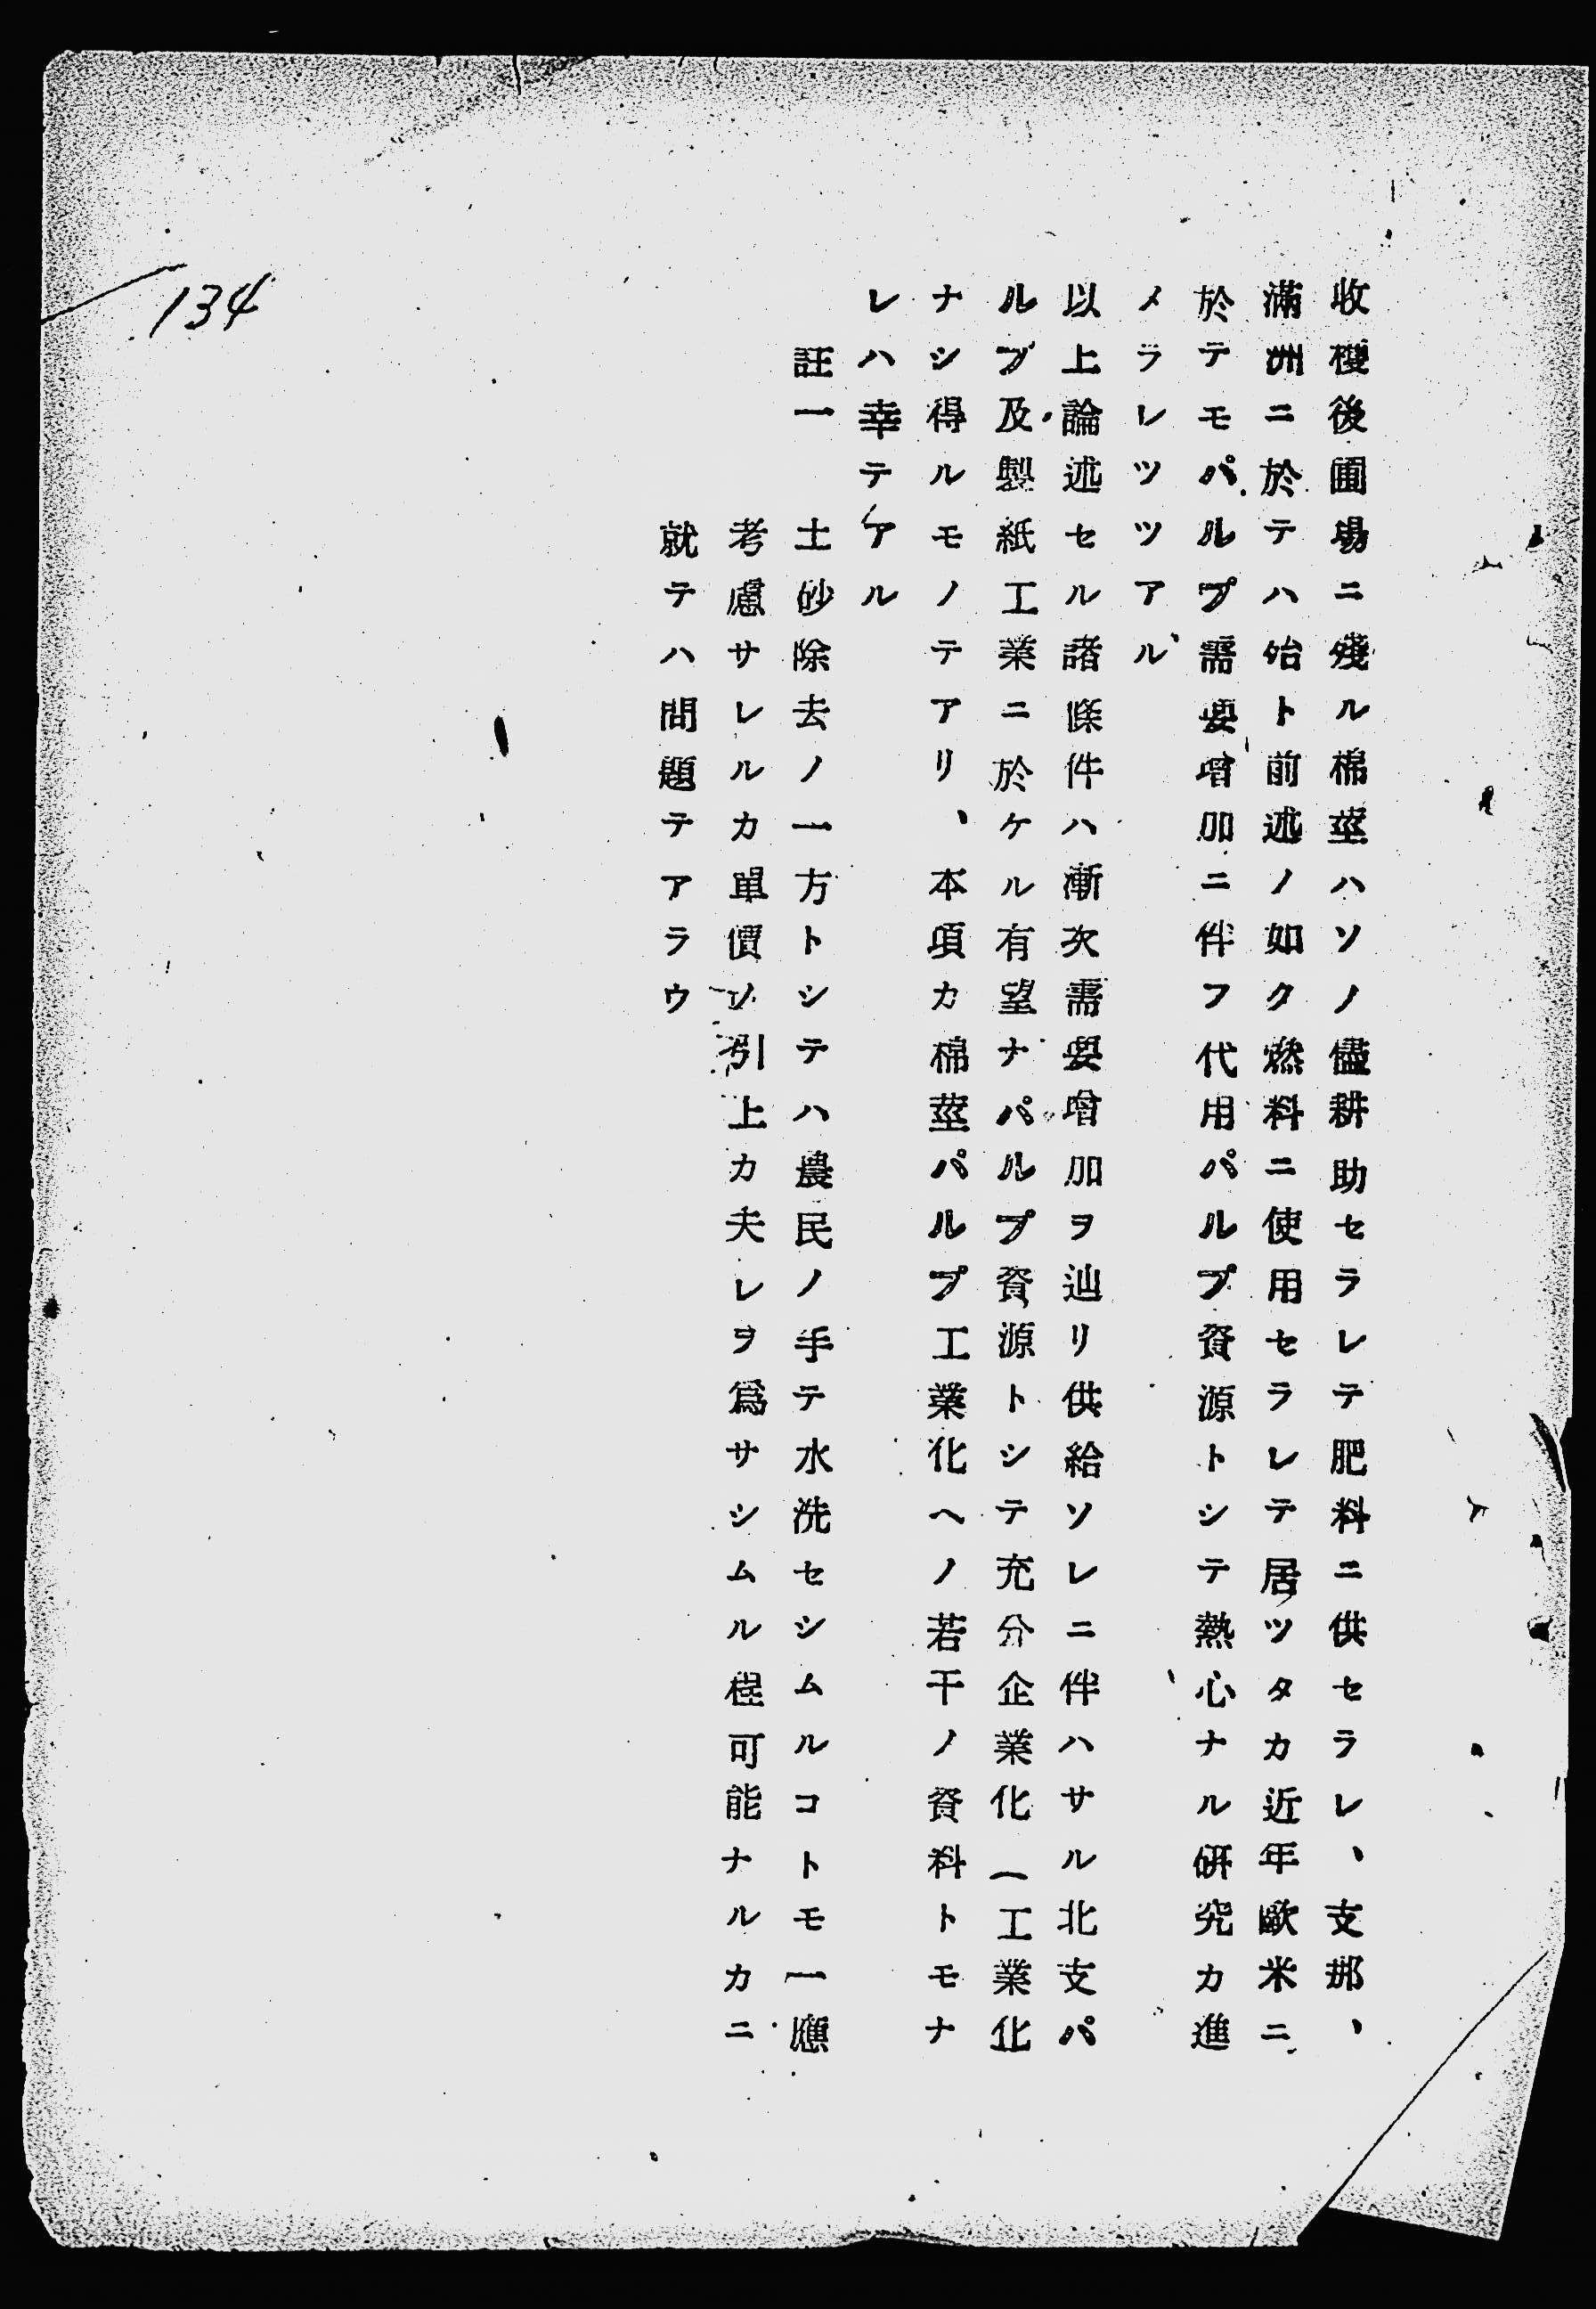 收穫後圃場ニ殘ル棉莖ハソノ儘耕助セラレテ肥料ニ供セラレ、支那、
滿洲ニ於テハ殆ト前述ノ如ク燃料ニ使用セラレテ居ツタカ近年歐米ニ
於テモパルプ需要增加ニ伴フ代用パルプ資源トシテ熱心ナル研究カ進
メラレツツアル
以上論述セル諸條件ハ漸次需要增加ヲ辿リ供給ソレニ伴ハサル北支パ
ルプ及製紙工業ニ於ケル有望ナパルプ資源トシテ充分企業化(工業化
ナシ得ルモノテアリ、本項カ棉莖パルプ工業化ヘノ若干ノ資料トモナ
レハ幸テアル
註一 土砂除去ノ一方トシテハ農民ノ手テ水洗セシムルコトモ一應
考慮サレルカ單價ノ引上カ夫レヲ爲サシムル程可能ナルカニ
就テハ問題テアラウ
134